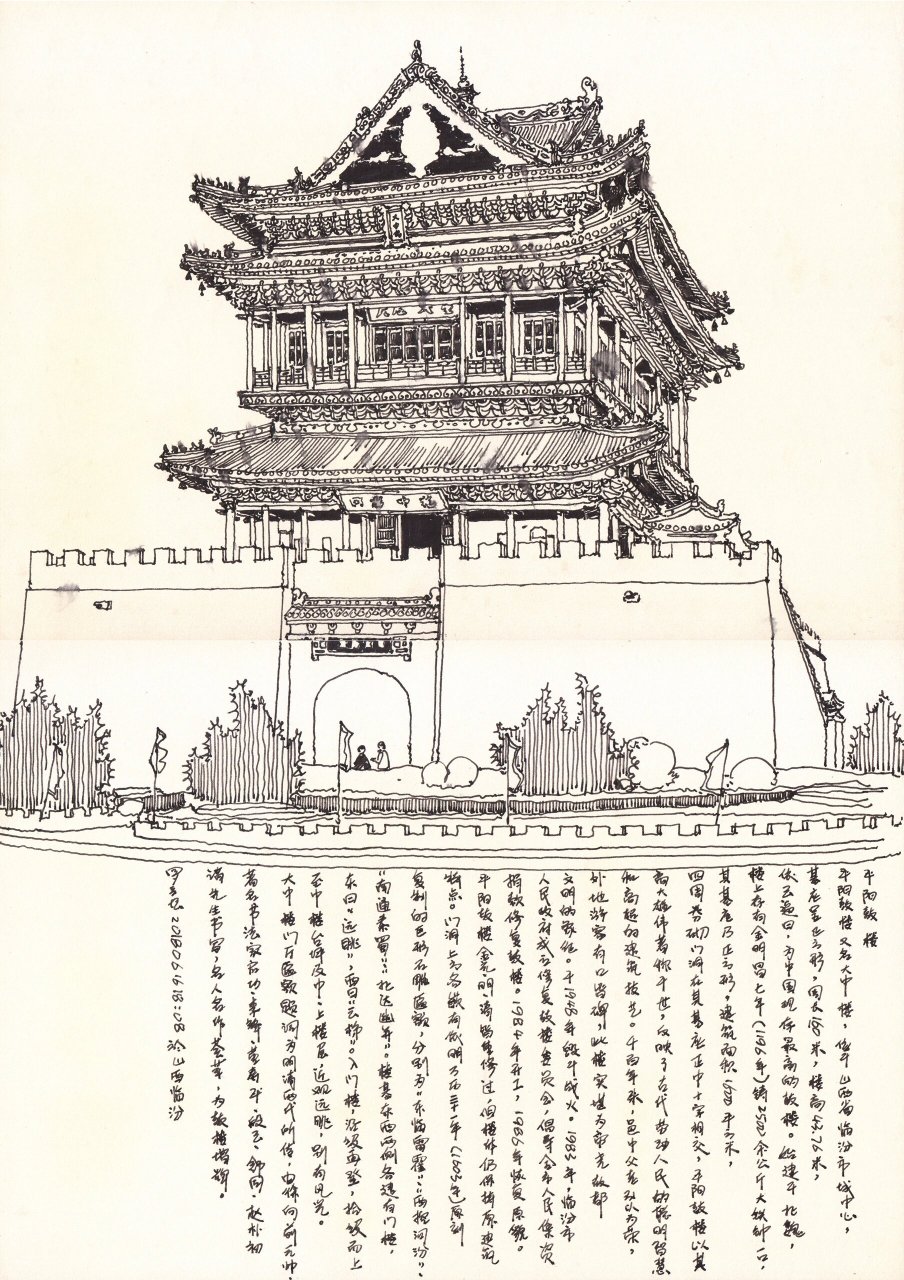 平阳鼓楼
平阳鼓楼又名大中楼，位于山西省临汾市城中心，
基座呈正方形，周长158米，楼高43.76米，
状云遏日，为中国现存最高的鼓楼。始建于北魏，
楼上存有金明昌七年（1196年）铸2500余公斤大铁钟一口，
其基座乃正方形，建筑面积 平方米，
四周券砌门洞在其基座正中十字相交，平阳鼓楼以其
高大雄伟著称于世，反映了古代劳动人民的聪明智慧
和高超的建筑技艺。千百年来，邑中父老引以为荣，
外地游客有口皆碑，此楼实堪为帝尧故都
文明的象征。于1948年毁于战火。1982年，临汾市
人民政府成立修复鼓楼委员会，倡导全市人民集资
捐款修复鼓楼。1984年开工，1986年恢复原貌。
平阳鼓楼金元明清皆维修过，但楼体仍保持原建筑
特点。门洞上方各嵌有明万历三十一年（1603年）原刻
复制的巨形石雕匾额，分别为“东临雷霍”“西控河汾”
“南通秦蜀”“北达幽并”。楼基东西两侧各建有门楼，
东曰“远眺”，西曰“云梯”。入门楼，沿级而登，拾级而上
至中楼台阶及中、上楼层，近观远眺，别有风光。
大中楼门厅匾额题词为明清两代所传，由徐向前元帅、
著名书法家 、董寿平、 、 、赵朴初
诸先生书写，名人名作荟萃，为鼓楼增辉。
20180616 18:08 於山西临汾